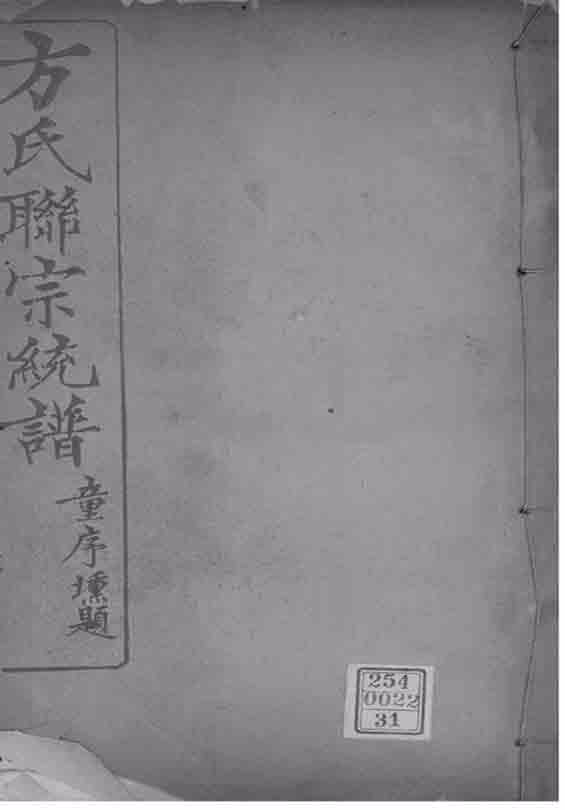 方氏聯宗統譜
童序壎題
254
0022
31